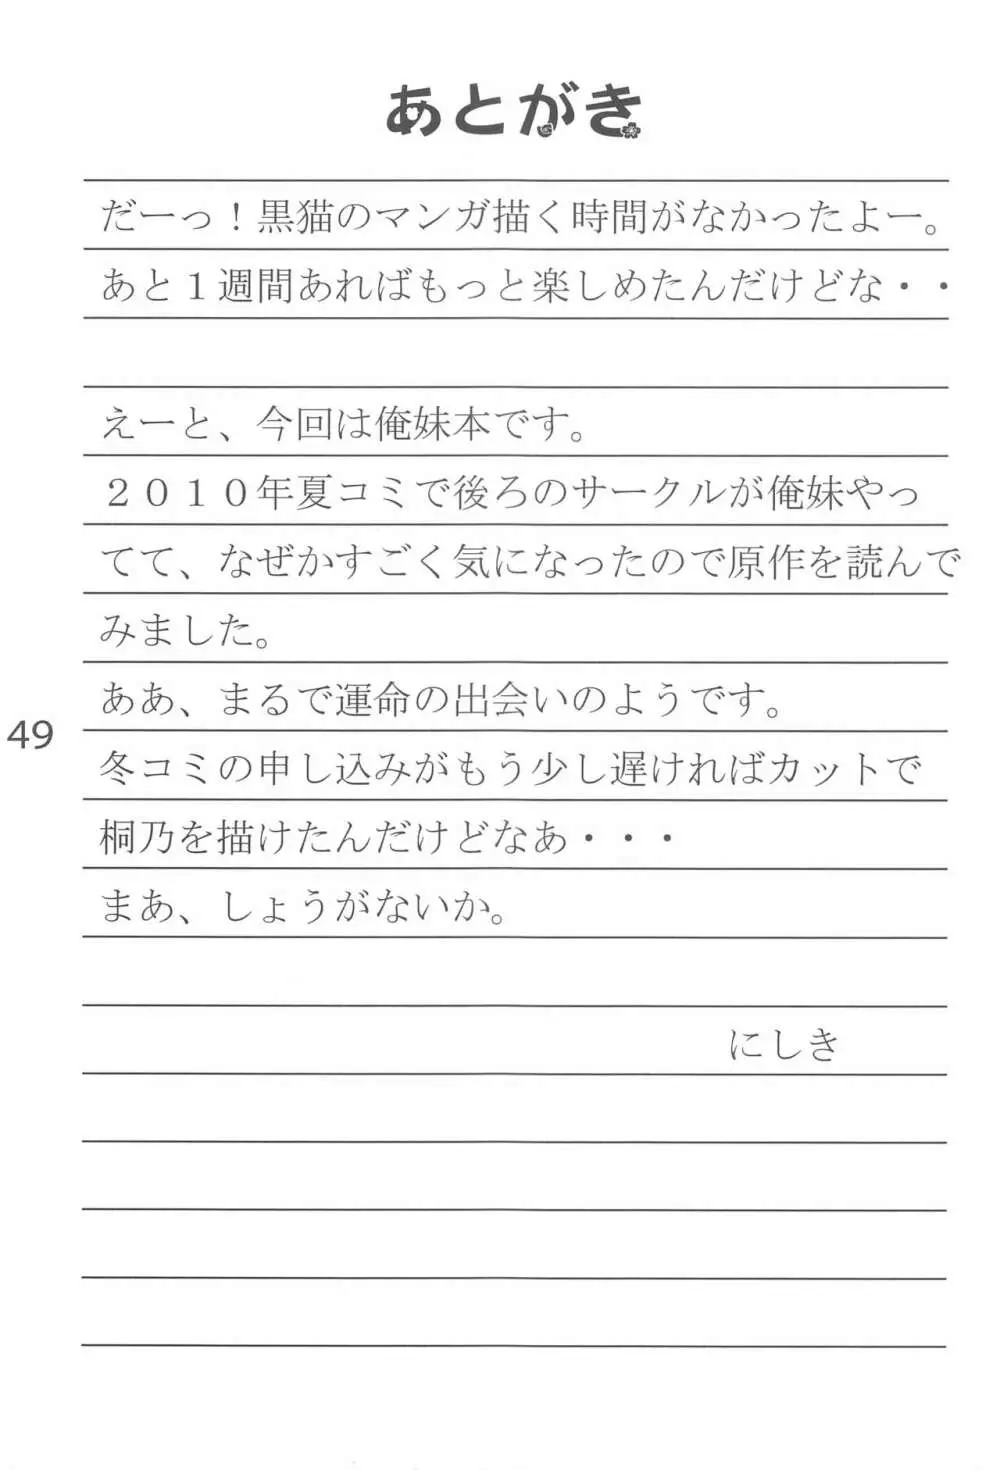 あとがき
だーっ！黒猫のマンガ描く時間がなかったよー。
あと１週間あればもっと楽しめたんだけどな・・
えーと、今回は俺妹本です。
２０１０年夏コミで後ろのサークルが俺妹やっ
てて、なぜかすごく気になったので原作を読んで
みました。
ああ、まるで運命の出会いのようです。
49
冬コミの申し込みがもう少し遅ければカットで
桐乃を描けたんだけどなあ・・・
まあ、しょうがないか。
にしき